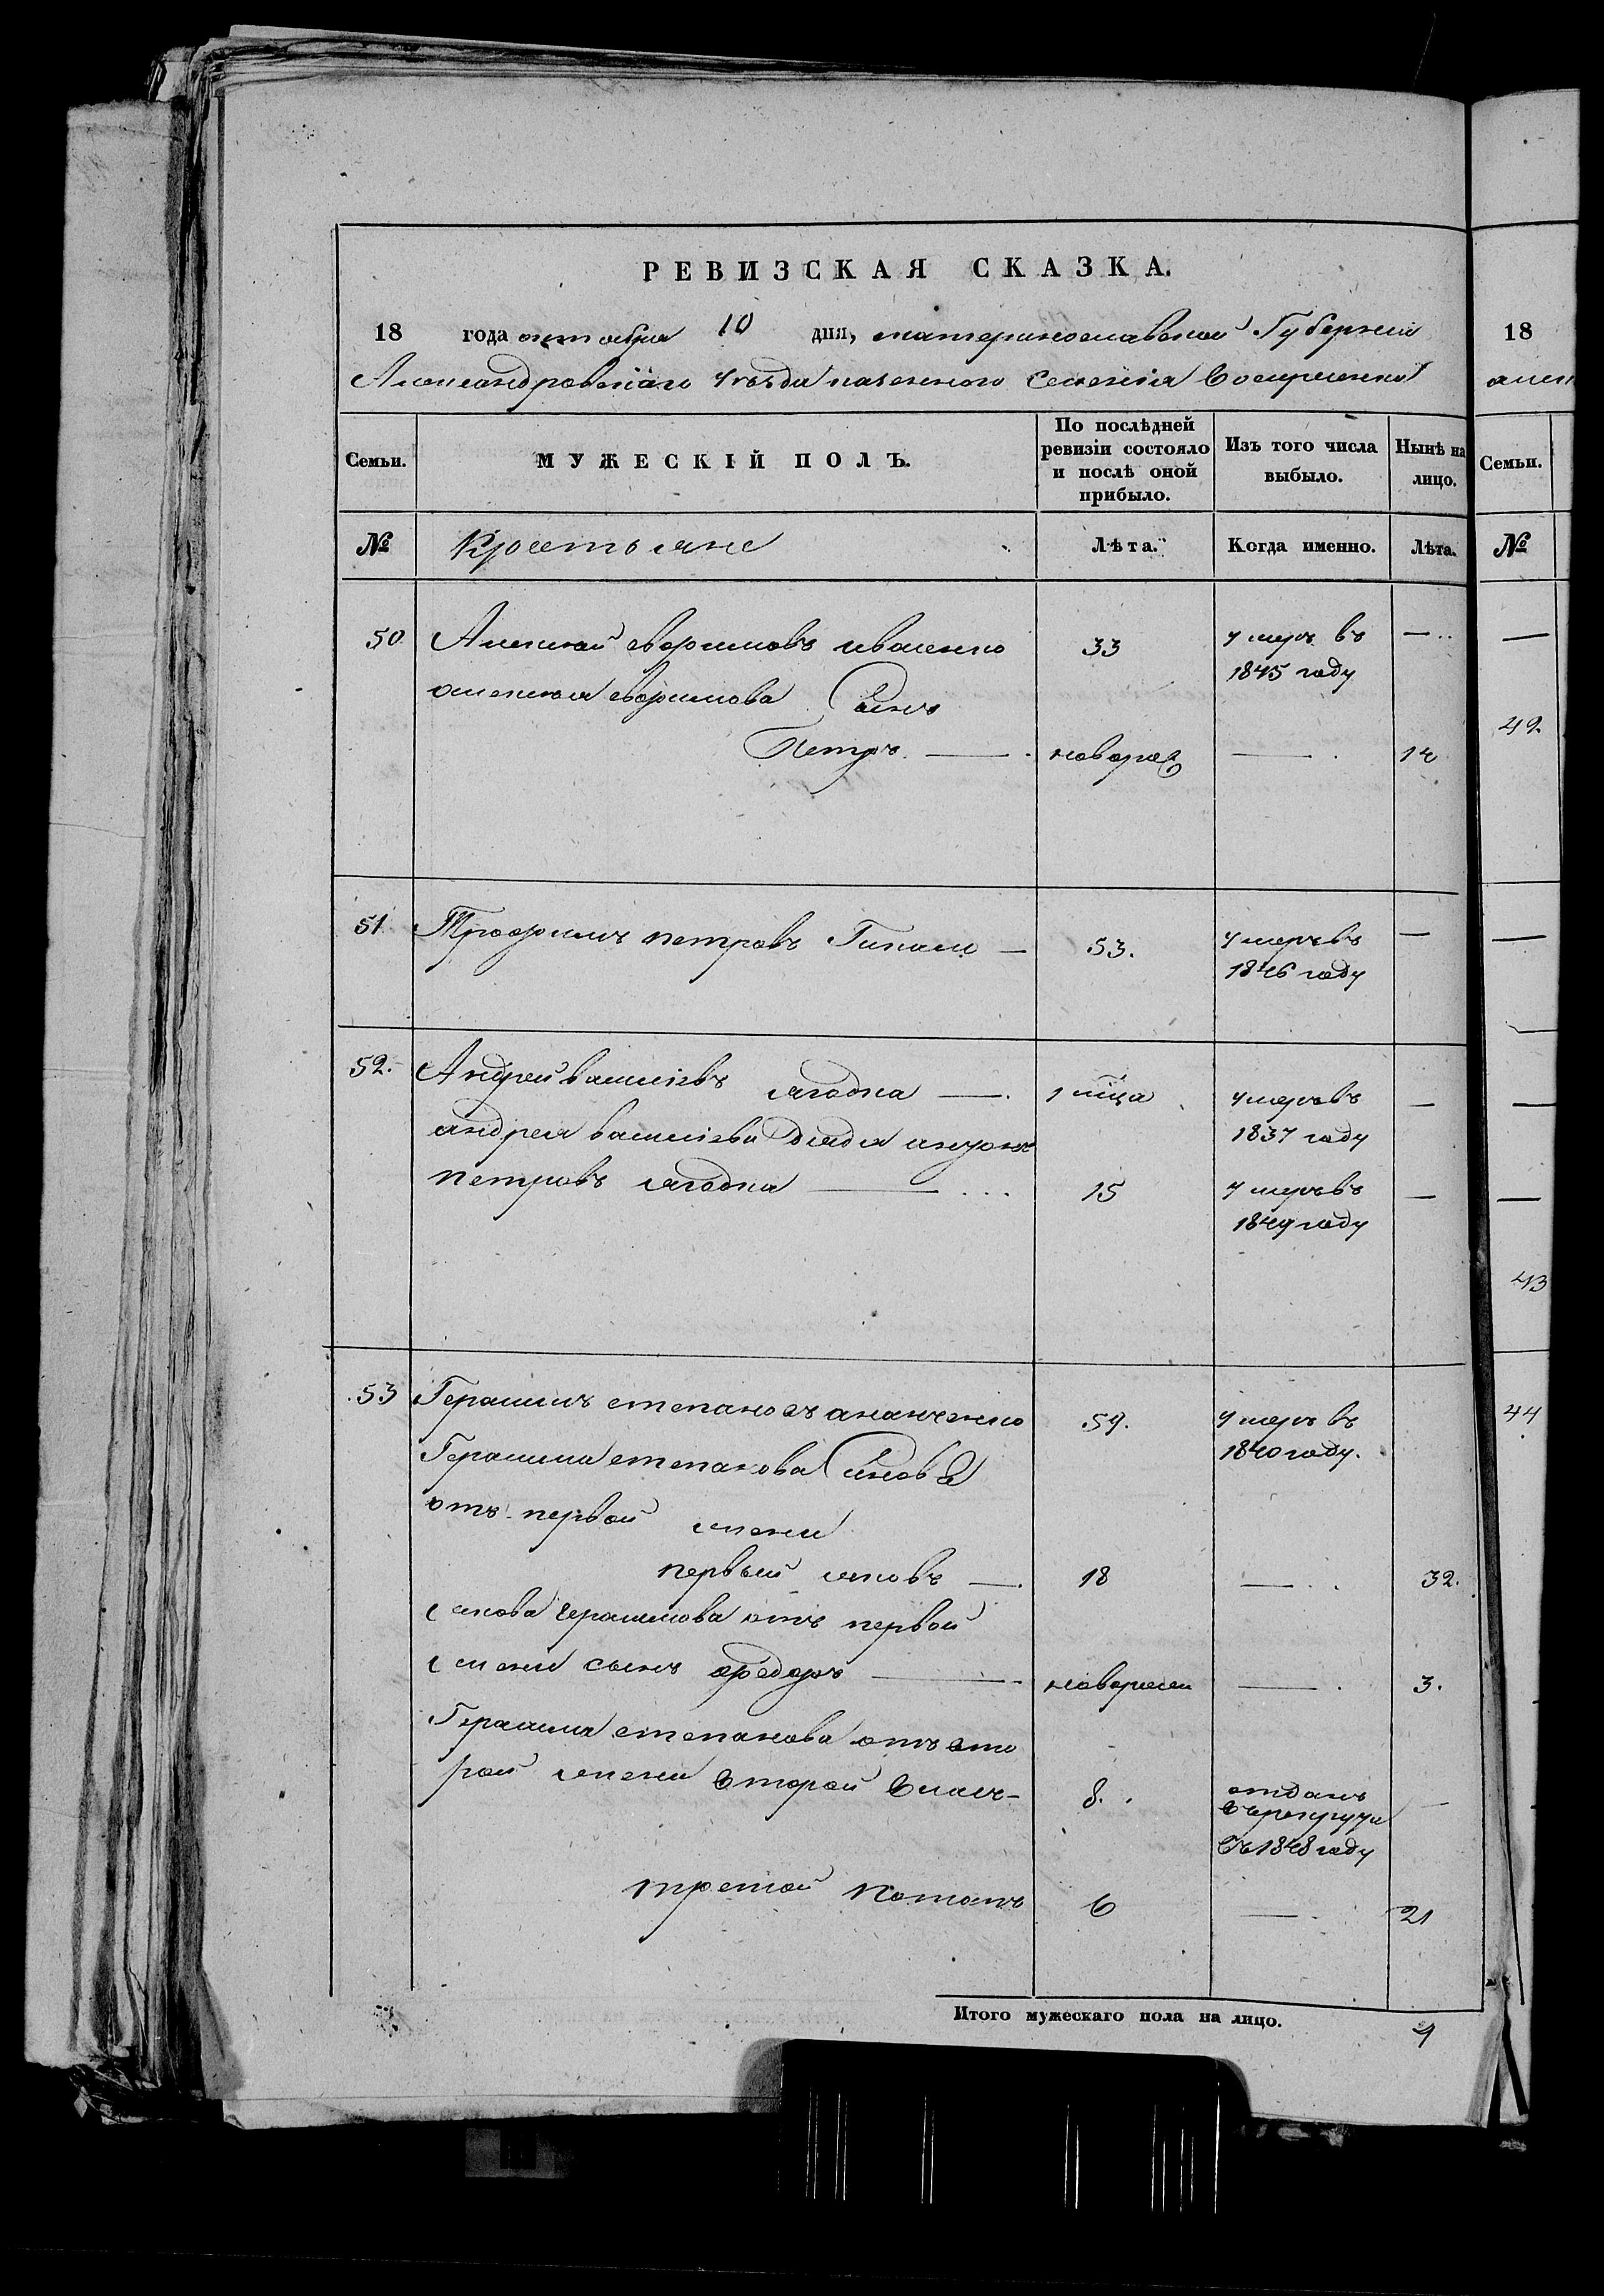 РЕВИЗСКАЯ СКАЗКА.
18 года октобря 10 дня, екатеринославской Губернии
Александровскаго уезда казенного Селения Воскресенки
Семьи.
МУЖЕСКІЙ ПОЛЪ.
По послѣдней ревизіи состояло и послѣ оной прибыло.
Изъ того числа выбыло.
Нынѣ на лицо.
№ Крестьяне Лѣта. Когда именно. Лѣта.
50 Алексей ефримовъ иваненко 33 умеръ въ —
1845 году
алексея ефримова Сынъ
Петръ — новорож — 12
51 Трофимъ петровъ — 53. умеръ въ —
1846 году
52. Андрей васильевъ ягодка — 1 мца умеръ въ —
андрея васильева дядя 1837 году
петровъ ягодка — 15 умеръ въ —
1849 году
53 Герасимъ степановъ ананченко 59. умеръ въ
Герасима степанова Сыновя 1840 году.
отъ первой жены
первый яковъ — 18 — 32.
якова герасимова отъ первой
жены сынъ федоръ — новорожен — 3.
Герасима степанова отъ вто
рой жены второй Власъ — 8. отданъ —
въ рекруты
въ 1848 году
третой Потапъ 6 — 21
Итого мужескаго пола на лицо. 4
18
Семьи.
№
42.
43
44